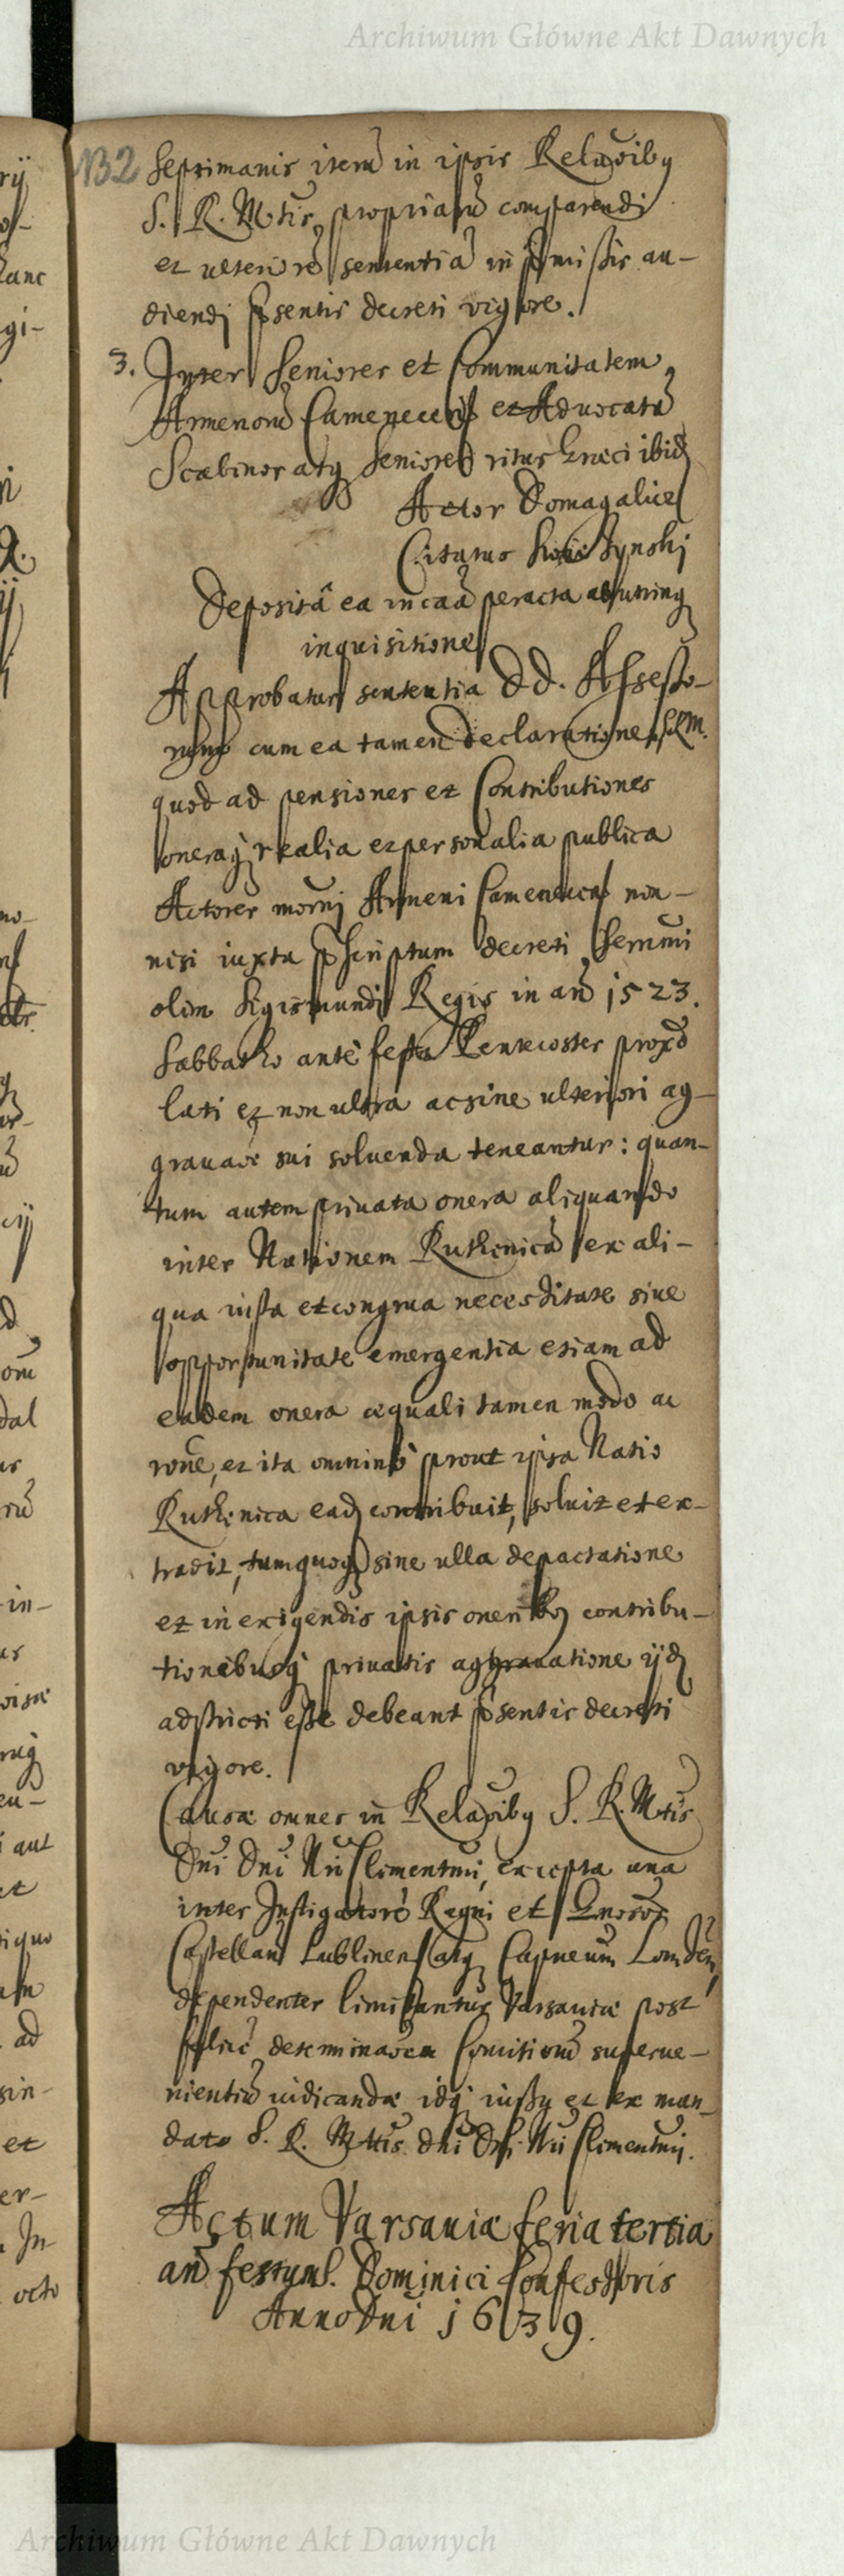 Archiwum Główne Akt Dawnych
132
Septimanis itẽ in ipsis Relãoibq
S. R. Mtis, propriaru comparendi
et ulteriorẽ sententiã in pmissis au-
diendj psentis decreti vigore.
3. Inter Seniores et Communitatem
Armenorũ Camenecen et Advocatũ
Scabinos atq Seniores ritus Græci ibid
Actor Domagalicz
Citatus
Depositâ ea in caã peracta ab utrinq
inquisitione
Approbatur sententia DD. Assesso-
rum cum ea tamen declaratione SRM.
quod ad pensiones et Contributiones
oneraq realia et personalia publica
Actores Armeni Camenecen non-
nisi iuxta pscriptum decreti Serenmi
olim Sigismundi Regis in an 1523.
Sabbatho ante festa Pentecostes proxõ
lati et non ultra ac sine ulteriori ag-
gravaõe sui soluenda teneantur: quan-
tum autem privata onera aliquando
inter Nationem Ruthenicã ex ali-
qua iusta et congrua necessitate siue
opportunitate emergentia etiam ad
eadem onera æquali tamen modo ac
rõne, et ita omninò prout ipsa Natio
Ruthenica ead contribuit, soluit et ex-
tradit, tum quoq sine ulla depactatione
et in exigendis ipsis oneribq contribu-
tionibusq priuatis aggrauatione ijd
adstricti esse debeant psentis decreti
vigore.
Causæ omnes in Relaõibq S. R. Mtis
Dni Dni Nri Clementmi, excepta una
inter Instigatorẽ Regni et Gnosos
Castellan Lublinen atq Capneum
dependenter limitantur Varsauiæ post
felicẽ determinaõem Comitiorũ superue-
nientiũ iudicandæ idq iussu et ex man-
dato S. R. Mttis dni Dni Nri Clementmi.
Actum Varsauiæ feria tertia
an festum S. Dominici Confessoris
Anno Dni 1639.
Archiwum Główne Akt Dawnych